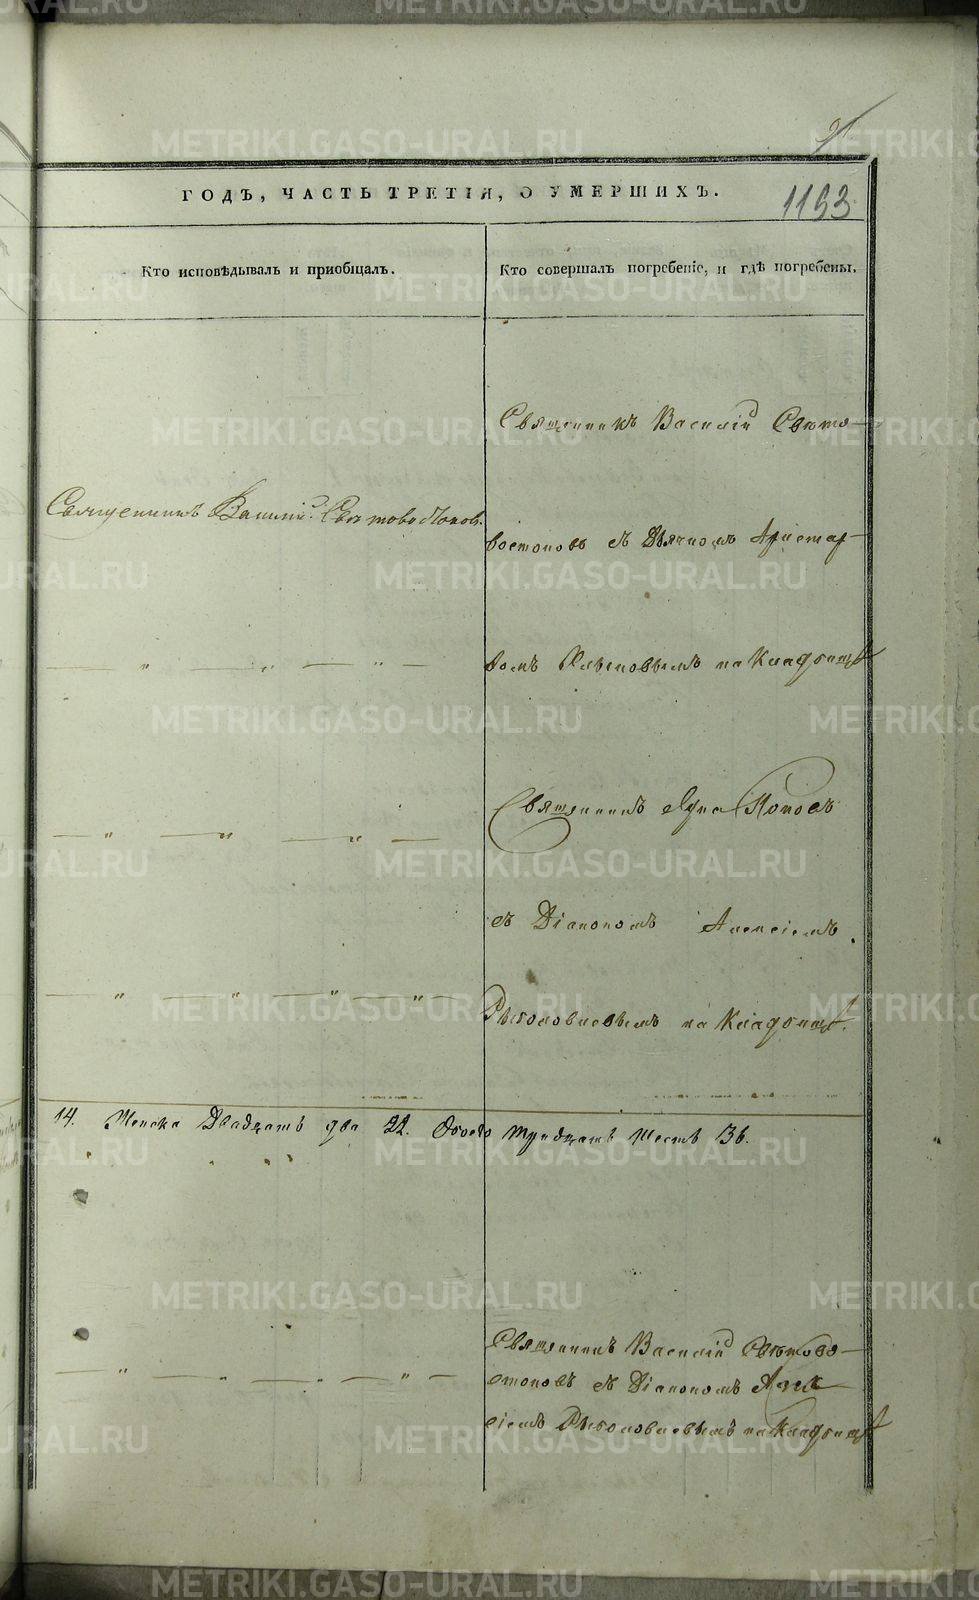 91
ГОДЪ, ЧАСТЬ ТРЕТІЯ, О УМЕРШИХЪ.
1153
Кто исповѣдывалъ и пріобщалъ.
Кто совершалъ погребеніе, и гдѣ погребены.
Священникъ Василій Свѣто-
Священникъ Василій Свѣтовостоковъ.
востоковъ съ Дьячкомъ Аристар-
хомъ на Кладбищѣ
Священникъ Поповъ
съ Діакономъ Алексіемъ
Рыболовлевымъ на Кладбищѣ.
14. Женска Двадцать два 22. Обоего тридцать шесть 36.
Священникъ Василій Свѣтово-
стоковъ съ Діакономъ Алек-
сіемъ Рыболовлевымъ на Кладбищѣ
METRIKI.GASO-URAL.RU